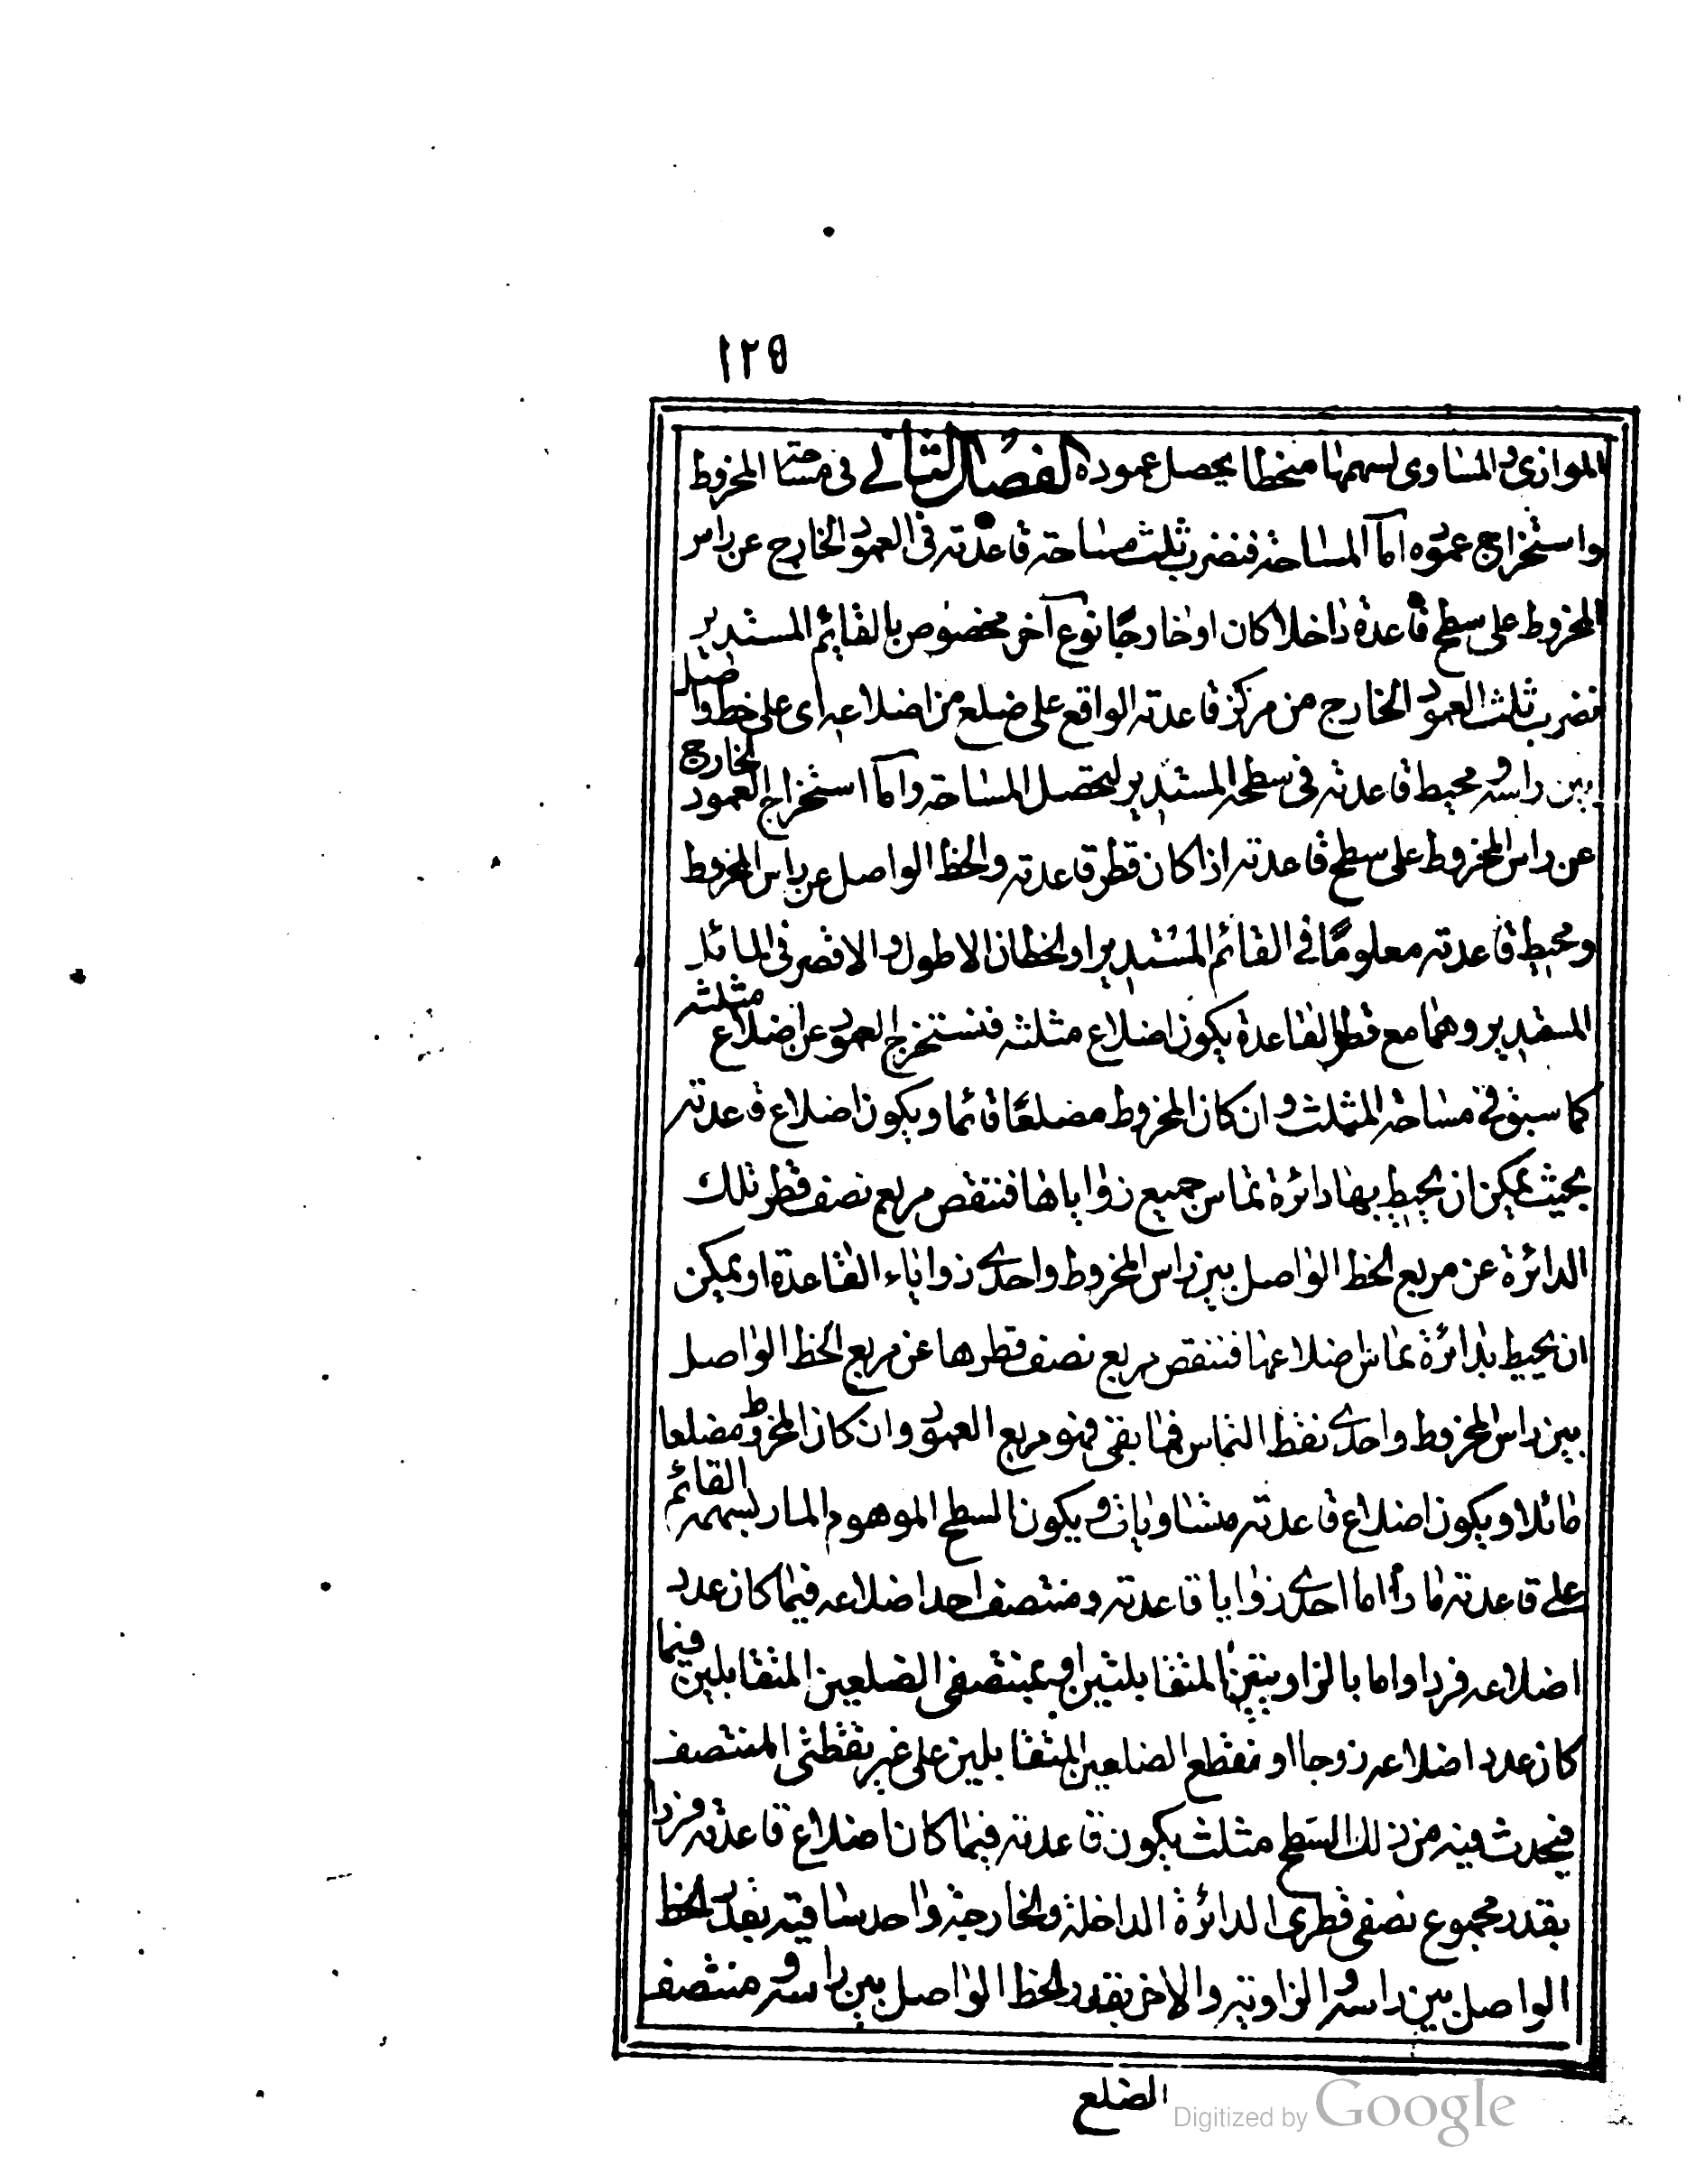 ١٢٥
الموازى والمساوى لسهمها منخطا يحصل عموده الفصل الثانے فى مساحة المخروط
واستخراج عموده اما المساحة فنضرب ثلث مساحة قاعدته فى العمود الخارج عن راس
المخروط على سطح قاعدة داخلا كان او خارجًا نوع آخر مخصوص بالقايم المستدير
نضرب ثلث العمود الخارج من مركز قاعدته الواقع على ضلع من اضلاعه اى على خط واصل
بين راسه ومحيط قاعدته فى سطحه المستدير ليحصل المساحة واما استخراج العمود الخارج
عن راس المخروط على سطح قاعدته اذا كان قطر قاعدته والخط الواصل عن راس المخروط
ومحيط قاعدته معلومًا فے القائم المستدير او الخطان الاطول والاقصر فى المائل
المستدير وهما مع قطر القاعدة يكون اضلاع مثلثه فنستخرج العمود عن اضلاع مثلثه
كما سبق فى مساحة المثلث وان كان المخروط مضلعًا قائما ويكون اضلاع قاعدته
بحيث يمكن ان يحيط بها دائرة تماس جميع زواياها فننقص مربع نصف قطر تلك
الدائرة عن مربع الخط الواصل بين راس المخروط واحدے زواياء القاعدة او يمكن
ان يحيط بدائرة تماس اضلاعها فننقص مربع نصف قطرها عن مربع الخط الواصل
بين راس المخروط واحدے نقط التماس فما بقى فهو مربع العمود وان كان المخروط مضلعا
مائلا ويكون اضلاع قاعدته متساويات ويكون السطح الموهوم المار بسهمه القائم
علے قاعدته مارا اما احدے زوايا قاعدته ومنتصف احد اضلاعه فيما كان عدد
اضلاعه فردا واما بالزاويتين المتقابلتين او بمنتصفى الضلعين المتقابلين فيما
كان عدد اضلاعه زوجا او نقطع الضلعين المتقابلين على غير نقطتى المنتصف
فيحدث فيه من ذلك السطح مثلث يكون قاعدته فيما كان اضلاع قاعدته فردا
بقدر مجموع نصفى قطرى الدائرة الداخلة والخارجة واحد ساقيه بقدر الخط
الواصل بين راسه والزاوية والاخر بقدر الخط الواصل بين راسه ومنتصف
الضلع
Digitized by Google